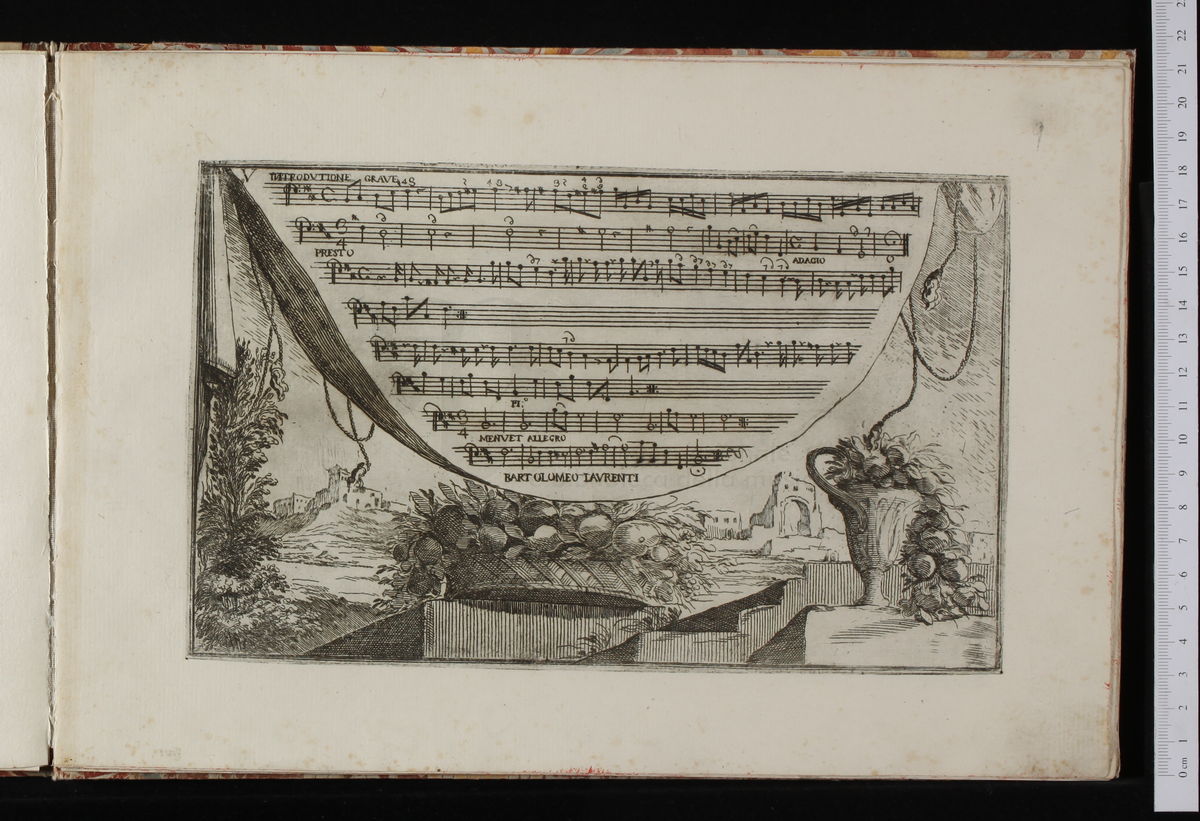 V
INTRODVTIONE GRAVE
PRESTO
ADAGIO
FI:
MENVET ALLEGRO
BARTOLOMEO LAVRENTI
0 cm 1 2 3 4 5 6 7 8 9 10 11 12 13 14 15 16 17 18 19 20 21 22